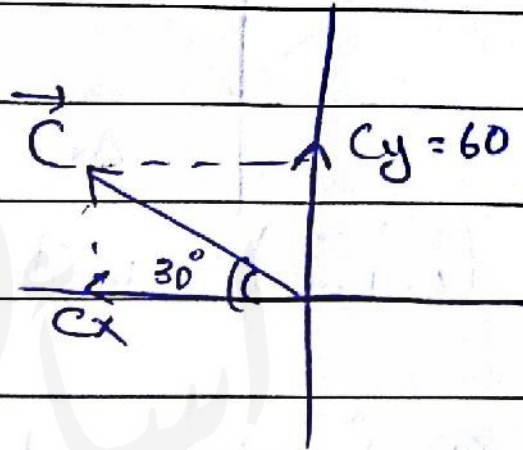 C⃗
Cy = 60
30°
Cx